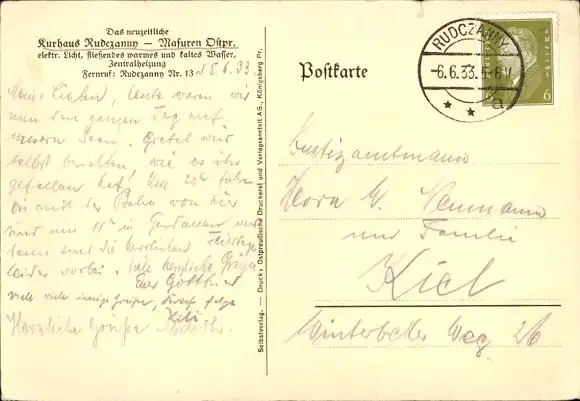 Das neuzeitliche
Kurhaus Rudczanny — Masuren Ostpr.
elektr. Licht, fließendes warmes und kaltes Wasser,
Zentralheizung
Fernruf: Rudczanny Nr. 13
d. 5.6.33
Meine Lieben, heute waren wir
nun den ganzen Tag auf
unsern Seen. Gretel wird
selbst berichten wie es ihr
gefallen hat! Um 20 fahren
wir mit der Bahn von hier
sind um 11 in Gerdauen und
dann sind die herrlichen Feiertage
leider vorbei. Viele herzliche Grüße
Euer Gottfried
viele viele innige Grüße,
Herzliche Grüße
Postkarte
RUDCZANNY
-6.6.33.5-6V
* * a
6
Justizamtmann
Herrn W. Neumann
und Familie
Kiel
Winterbeker Weg 26
Selbstverlag. — Druck: Ostpreußische Druckerei und Verlagsanstalt AG., Königsberg Pr.